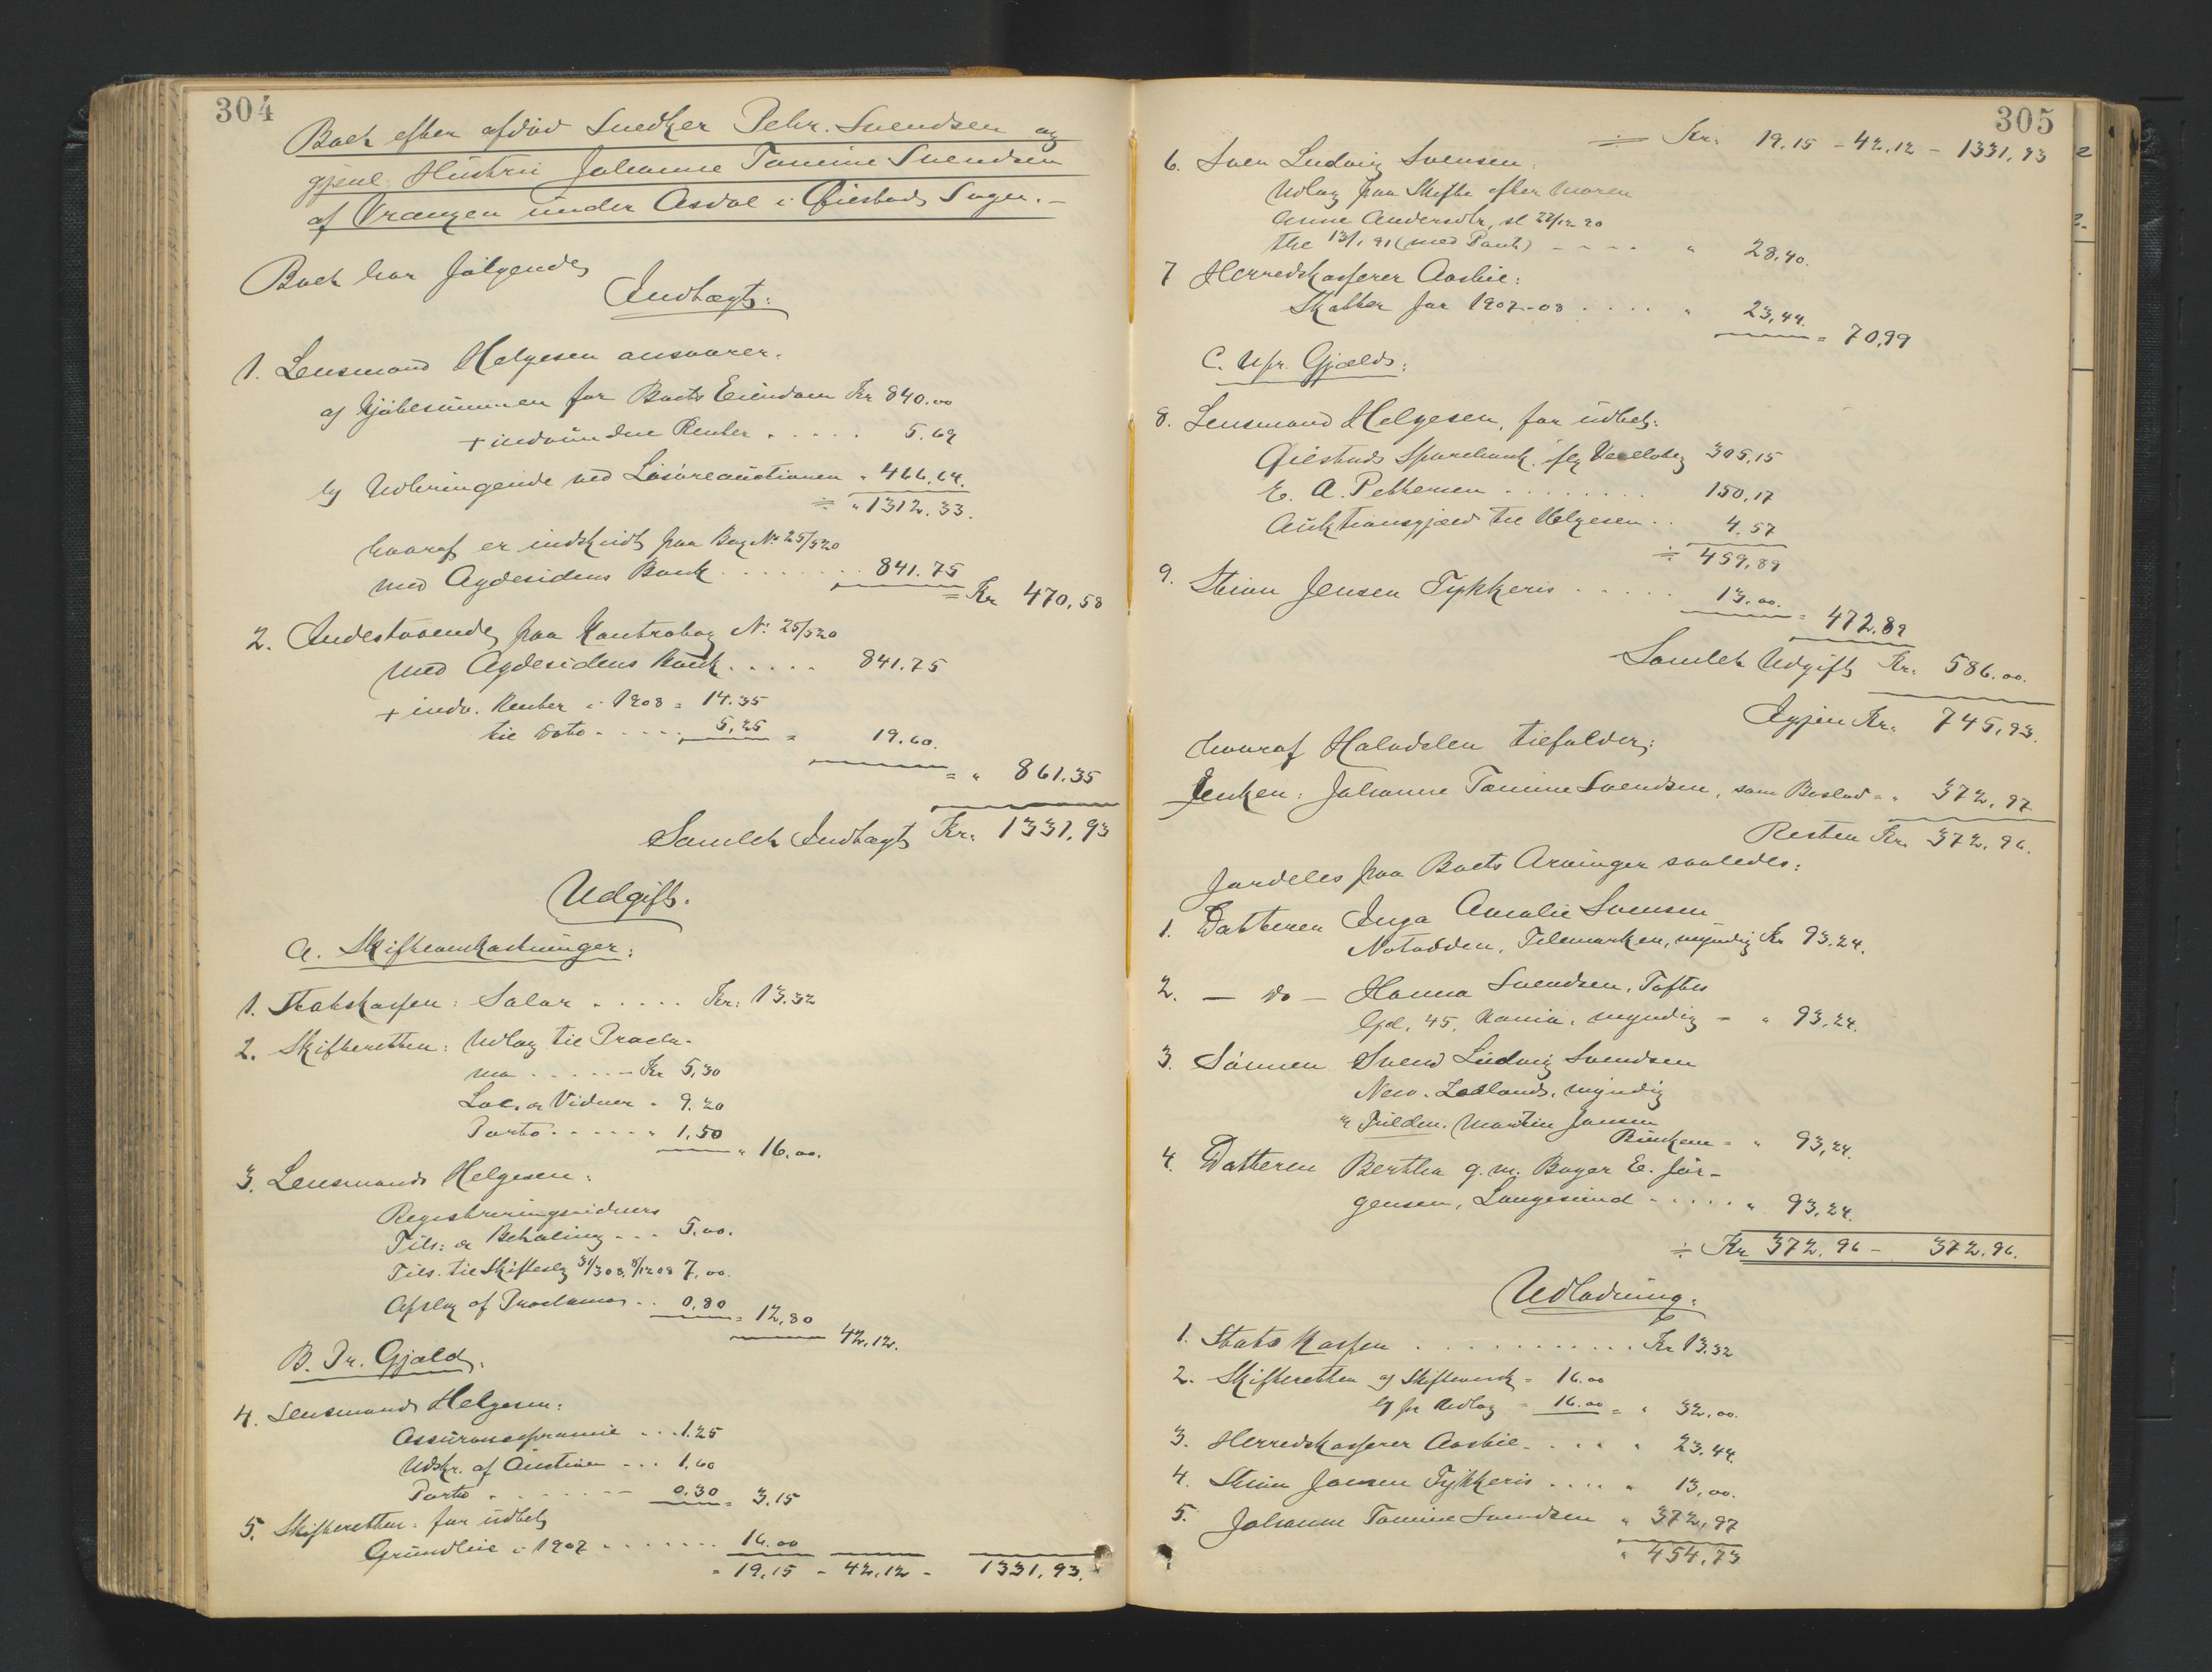 304
Boet efter afdød Snedker Pehr. Svendsen og
gjenl. Hustru Johanne Tomine Svendsen
af Vrængen under Asdal i Øiestads Sogn.-
Boet har følgende
Indtægt:
1. Lensmand Helgesen ansvarer.
a) Kjøbesummen for Boets Eiendom Kr 840.00
+ indvundne Renter . . . . . 5.69
b) Udbringende ved Løsøreauctionen " 466.64.
÷ " 1312.33.
hvoraf er indskudt paa Bog No 25/520
med Agdesidens Bank . . . . . . . 841.75
= Kr 470,58
2. Indestaaende paa Kontrabog No 25/520
med Agdesidens Bank . . . . . 841.75
+ indv. Renter i 1908 = 14.35
til Dato . . . . . 5,25 = 19.60.
= " 861.35
Samlet Indtægt Kr. 1331,93
Udgift.
A. Skifteomkostninger:
1. Statskassen: Salær . . . . . Kr: 13.32
2. Skifteretten: Udlæg til Procla-
ma . . . . . - Kr 5,30
Loc. og Vidner " 9.20
Porto . . . . . " 1,50
" 16.00.
3. Lensmand Helgesen:
Registreringsvidners
Tils: og Betaling - - - 5,00.
Tils. til Skifteslg 31/308, 8/1208 7,00.
Opslag af Proclama . . 0,80 = 12,80
42,12.
B. Pr. Gjæld.
4. Lensmand Helgesen:
Assurancepræmie . . . 1.25
Udskr. af Auction . . . 1,60
Porto . . . . . . - - 0.30 = 3.15
5. Skifteretten: for udbet.
Grundleie i 1907 . . . . . . . 16.00
= 19,15 - 42,12 - 1331,93.
305
÷ Kr. 19,15 - 42,12 - 1331,93
6. Sven Ludvig Svensen:
Udlæg paa Skifte efter Moren
Anne Andersdtr, sl 22/12 90
thl 13/1 91 (med Pant) - - - - " 28,40.
7 Herredskasserer Aasbie:
Skatter for 1907-08 . . . . " 23,44.
= 70,99
C. Upr. Gjæld:
8. Lensmand Helgesen, for udbet:
Øiestads Sparebank iflg Vexelobg 305,15
E. A. Pettersen . . . . . . . . 150,17
Auktionsgjæld til Helgesen . . 4,57
÷ 459,89
9. Stian Jensen Tykkeris . . . . . 13.00.
= 472.89
Samlet Udgift Kr. 586.00.
Igjen Kr. 745,93.
hvoraf Halvdelen tilfalder:
Enken: Johanne Tomine Svendsen, som Boslod = " 372,97
Resten Kr. 372,96.
fordeles paa Boets Arvinger saaledes:
1. Datteren Inga Amalie Svensen
Notodden, Telemarken, myndig Kr 93.24.
2. — do — Hanna Svendsen, Toftes
Gd, 45, Kania, myndig = " 93,24.
3. Sønnen Svend Ludvig Svendsen
New. Zealand, myndig
" Fuldm. Martin Jensen
Bunkene = " 93,24.
4. Datteren Bertha g. m. Bager E. Jør-
gensen, Langesund . . . . . " 93,24.
÷ Kr 372,96 - 372,96.
Udlodning.
1. Stats Kassen . . . . . . . . . . . . Kr 13.32
2. Skifteretten a) Skifteomk = 16.00
b) for Udlæg = 16.00 = " 32,00.
3. Herredskasserer Aasbie . . . . " 23.44
4. Stian Jensen Tykkeris . . . . " 13,00.
5. Johanne Tomine Svendsen " 372,97
" 454,73